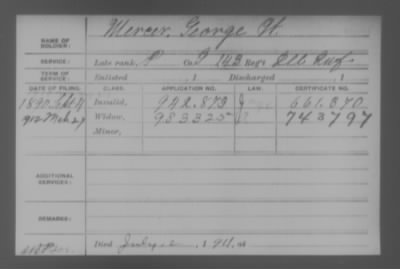 NAME OF SOLDIER: Mercer, George W.
SERVICE: Late rank, P Co. I 143 Reg't Ill. Inf.
TERM OF SERVICE: Enlisted , 1 Discharged , 1
DATE OF FILING. CLASS. APPLICATION NO. LAW. CERTIFICATE NO.
1890 Invalid, 942.873 661.070
1912 Widow, 983325 743797
Minor,
ADDITIONAL SERVICES:
REMARKS:
Died 1911, at